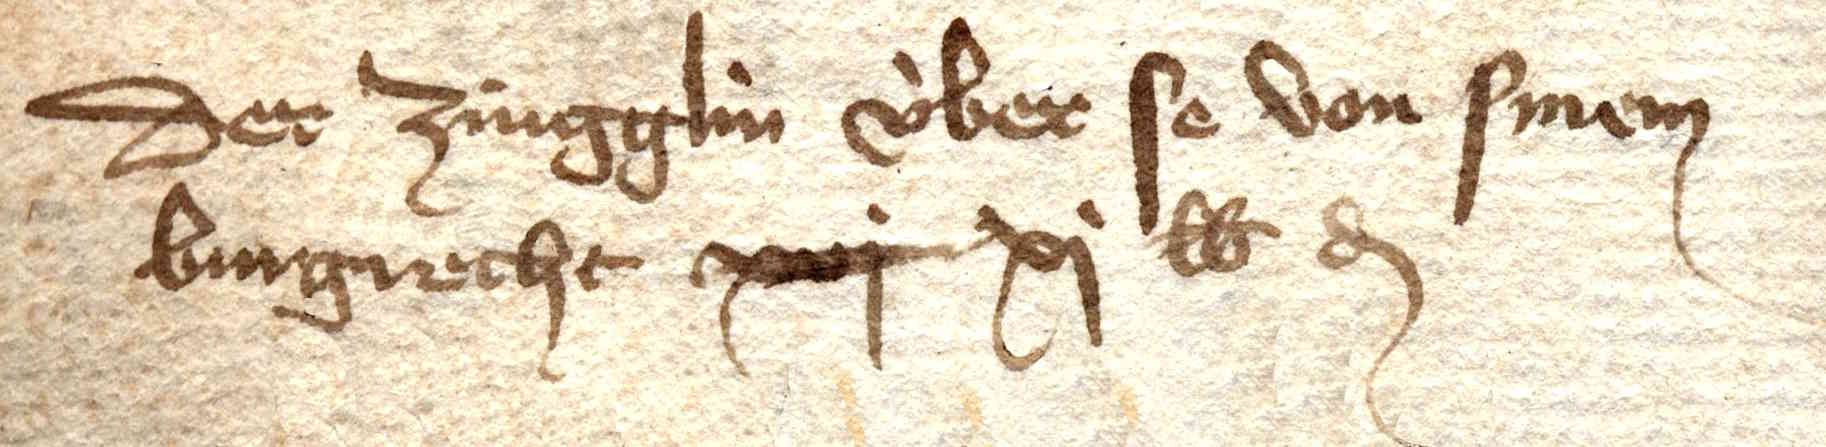 Der Zingglin über se von sinem
burgrecht xj lb d